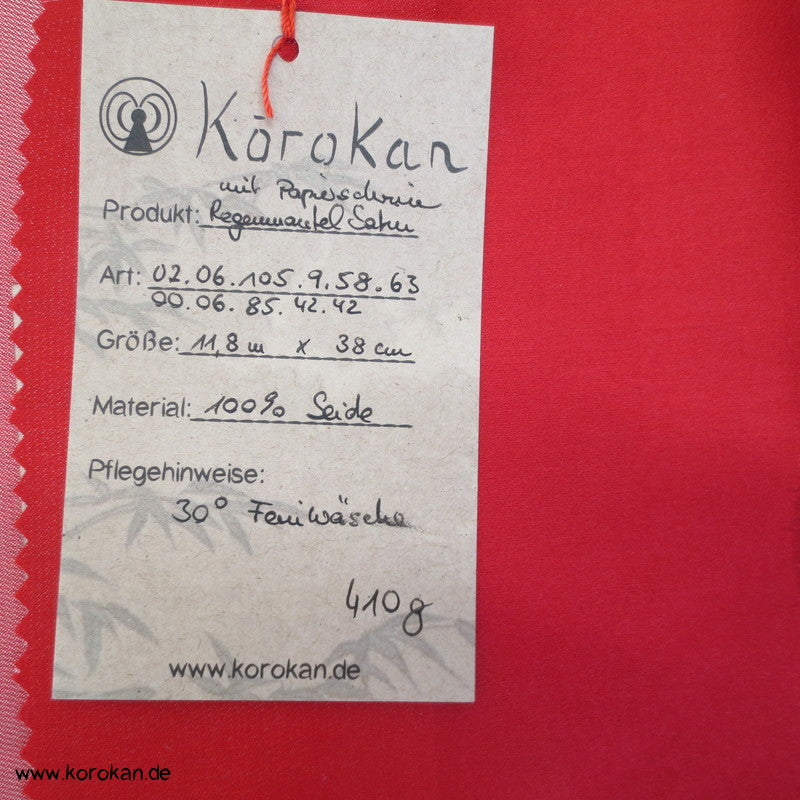 Korokan
mit Papierschnur
Produkt: Regenmantel Satin
Art: 02.06.105.9.58.63
00.06.85.42.42
Größe: 11,8 m x 38 cm
Material: 100% Seide
Pflegehinweise:
30° Feinwäsche
410g
www.korokan.de
www.korokan.de